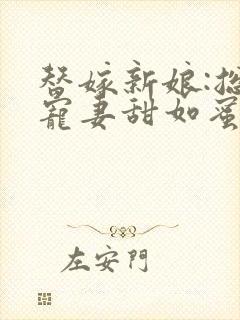 替嫁新娘:总
宠妻甜如蜜
左安門